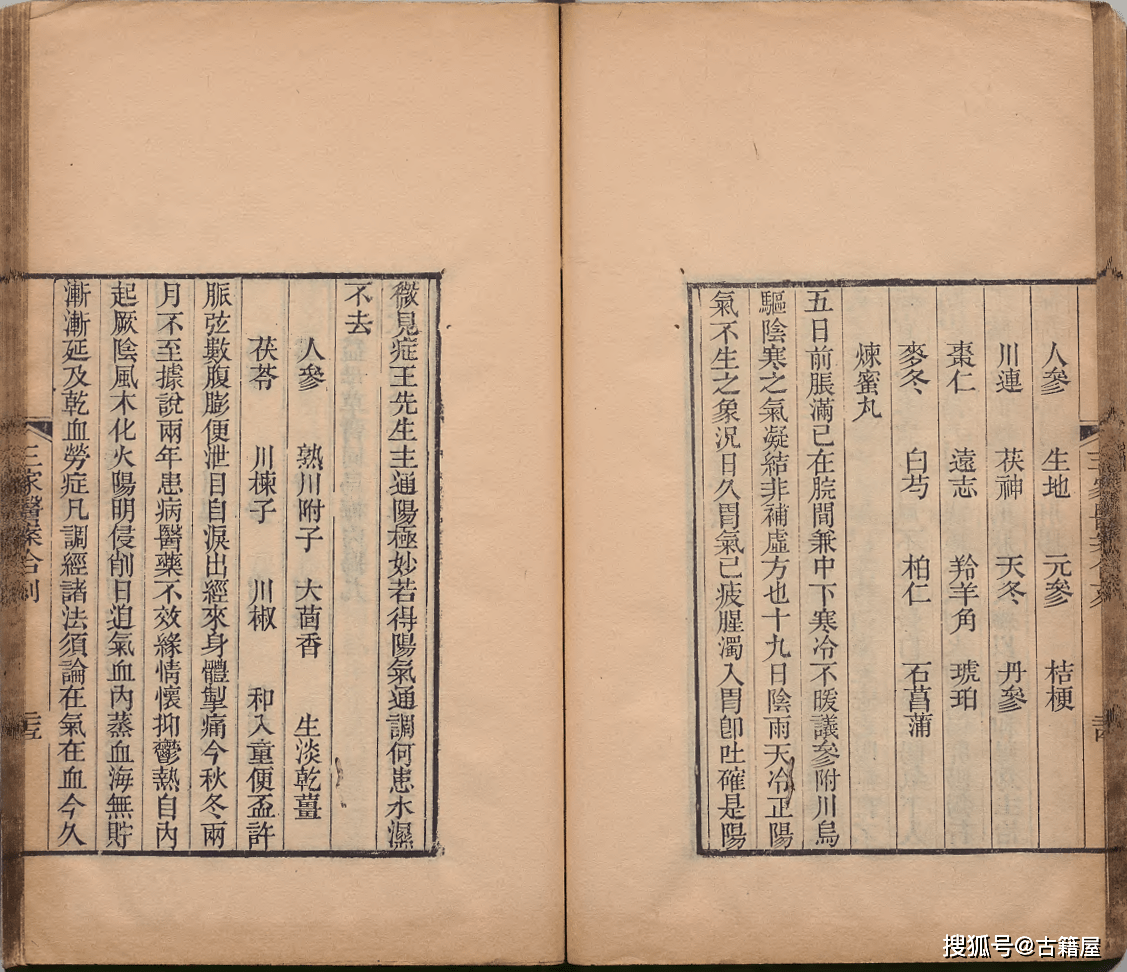 人參　生地　元參　桔梗
川連　茯神　天冬　丹參
棗仁　遠志　羚羊角　琥珀
麥冬　白芍　柏仁　石菖蒲
煉蜜丸
五日前脹滿已在脘間兼中下寒冷不暖議參附川烏
驅陰寒之氣凝結非補虛方也十九日陰雨天冷正陽
氣不生之象況日久胃氣已疲腥濁入胃卽吐確是陽
微見症王先生主通陽極妙若得陽氣通調何患水濕
不去
人參　熟川附子　大茴香　生淡乾薑
茯苓　川楝子　川椒　和入童便盃許
脈弦數腹膨便泄目自淚出經來身體掣痛今秋冬兩
月不至據說兩年患病醫藥不效緣情懷抑鬱熱自內
起厥陰風木化火陽明侵削日迫氣血內蒸血海無貯
漸漸延及乾血勞症凡調經諸法須論在氣在血今久
三家醫案合刻
搜狐号@古籍屋